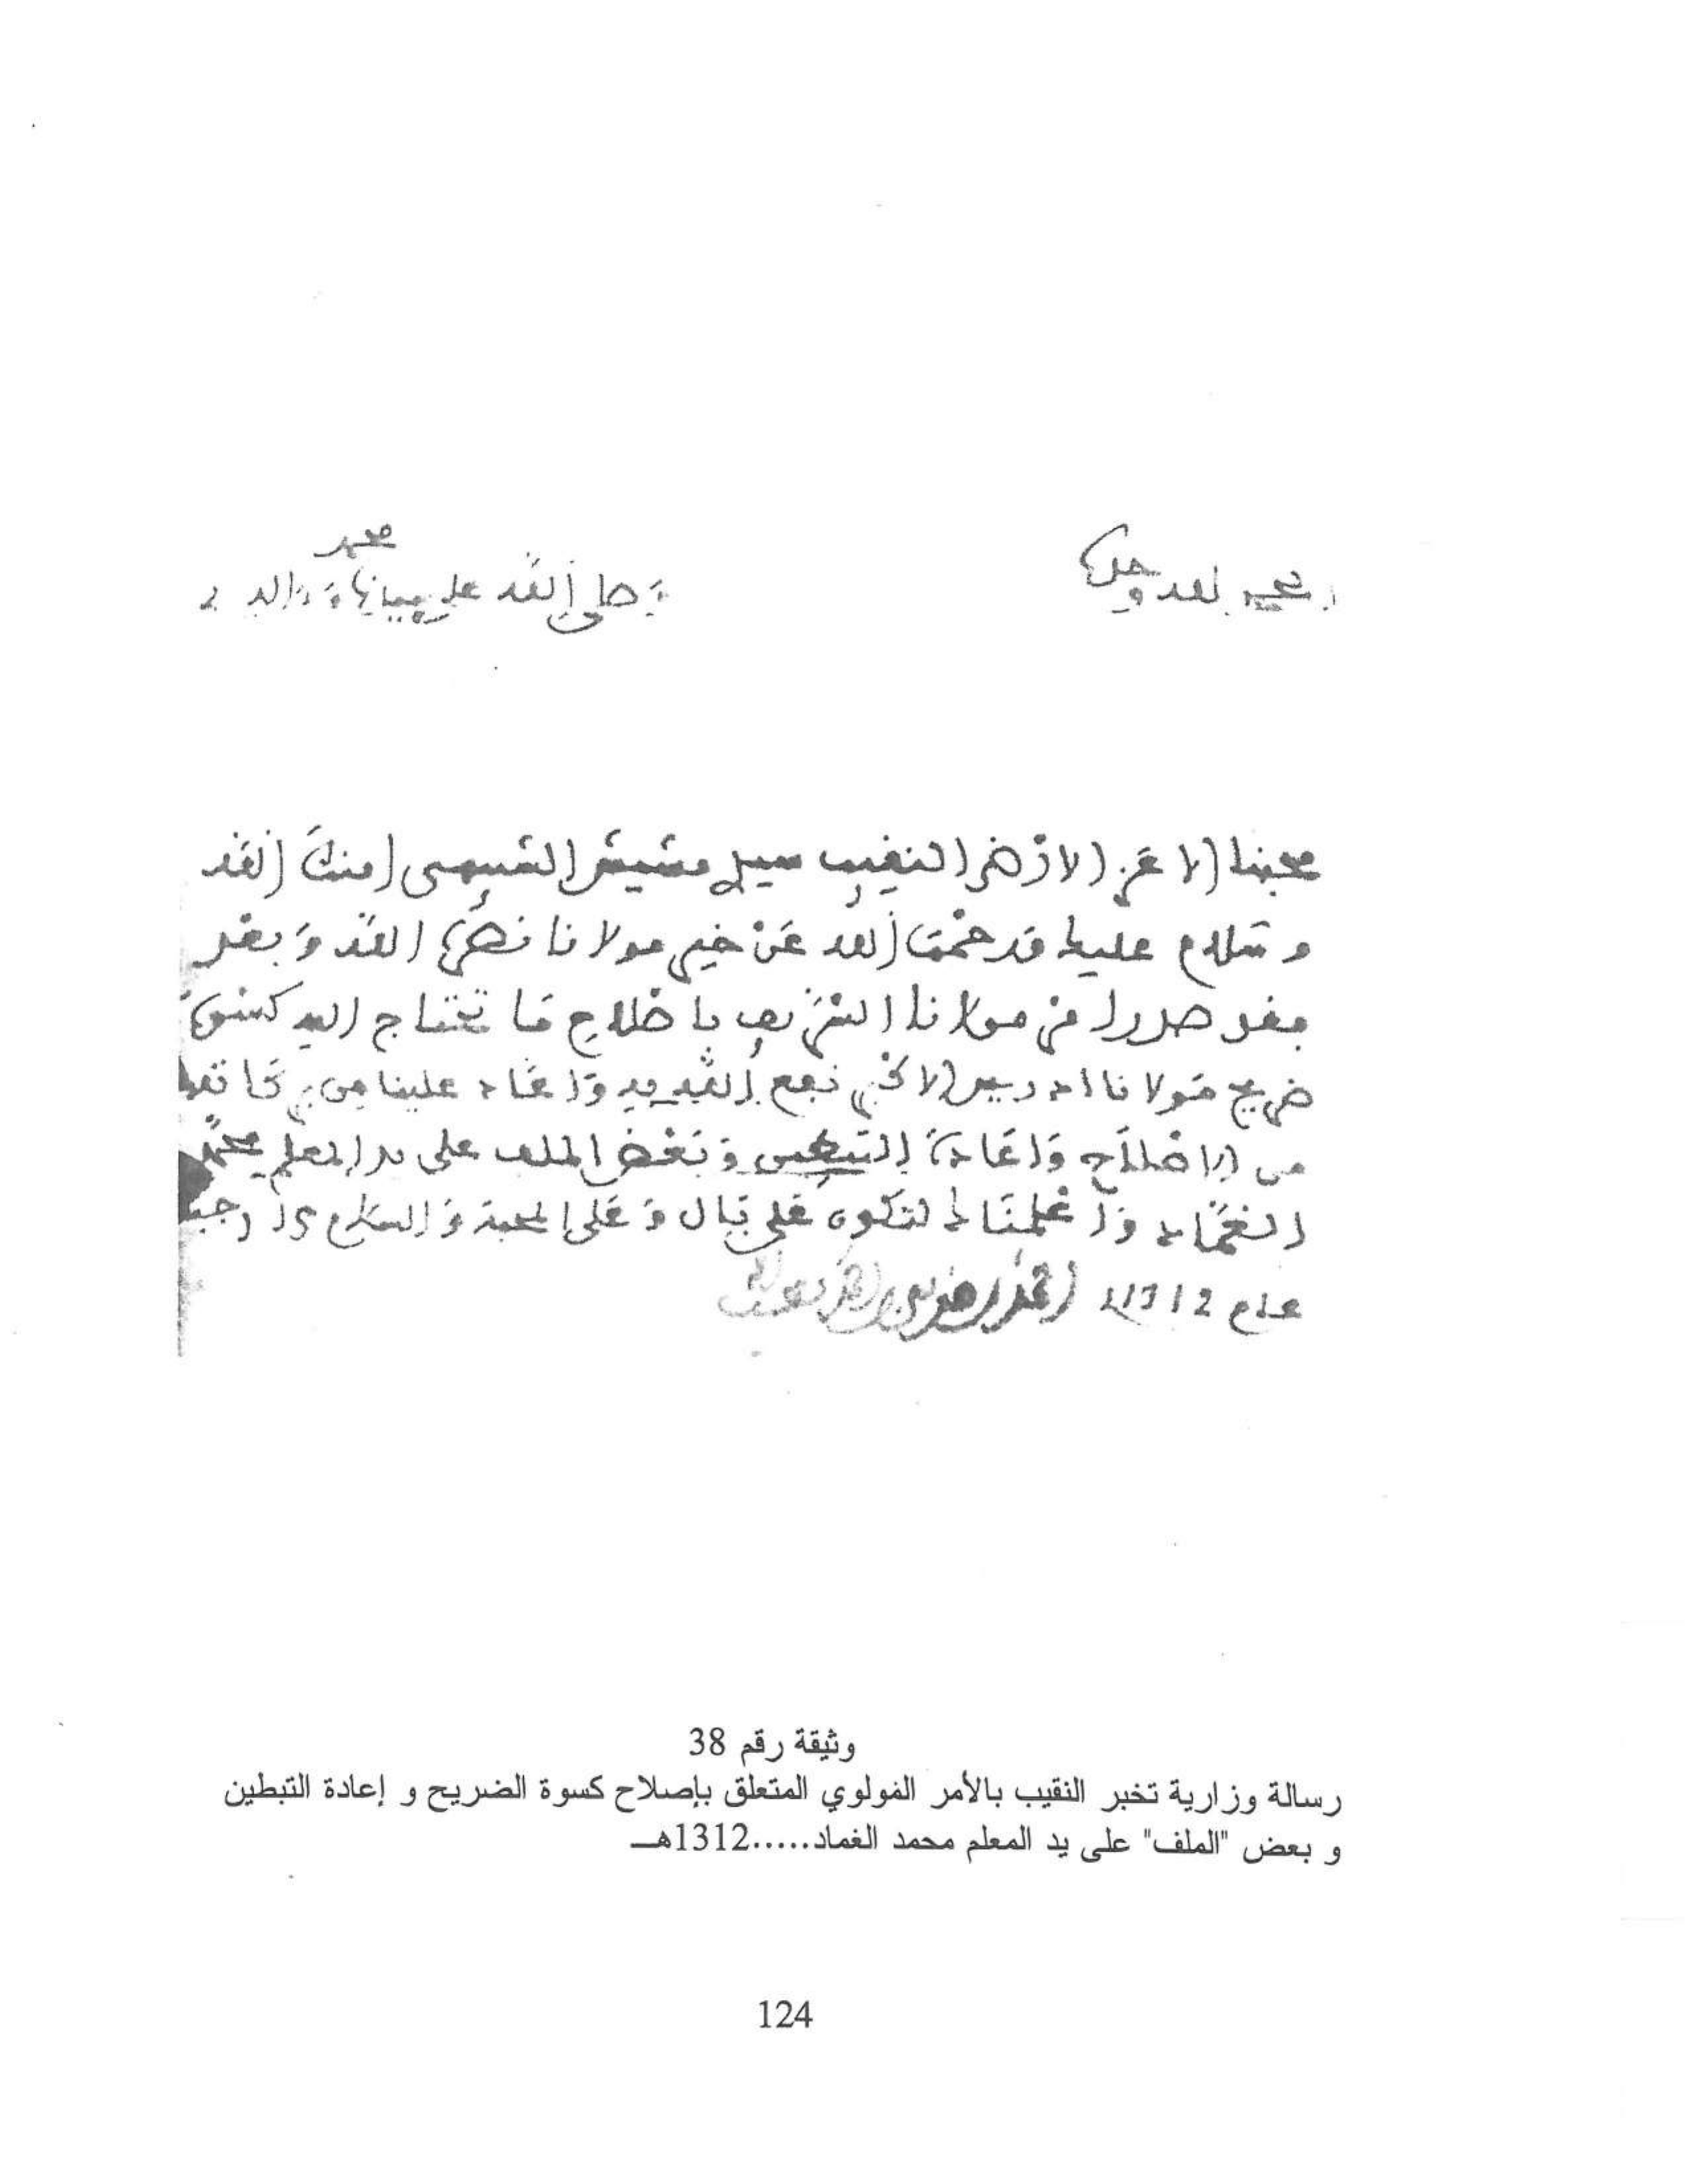 الحمد لله وحده
وصلى الله على سيدنا محمد وآله
محبنا الاعز الارضى النقيب سيدي مشيش الشبيهي امنك الله
وسلام عليك ورحمت الله عن خير مولانا نصره الله وبعد
فقد صدر امر مولانا الشريف باصلاح ما تحتاج اليه كسوة
ضريح مولانا ادريس الاكبر نفع الله به واعاد علينا من بركاته
من الاصلاح واعادة التبطين وبعض الملف على يد المعلم محمد
الغماد واعلمناك لتكون على بال وعلى المحبة والسلام في رجب
عام 1312
وثيقة رقم 38
رسالة وزارية تخبر النقيب بالأمر المولوي المتعلق بإصلاح كسوة الضريح و إعادة التبطين
و بعض "الملف" على يد المعلم محمد الغماد.....1312هـ
124